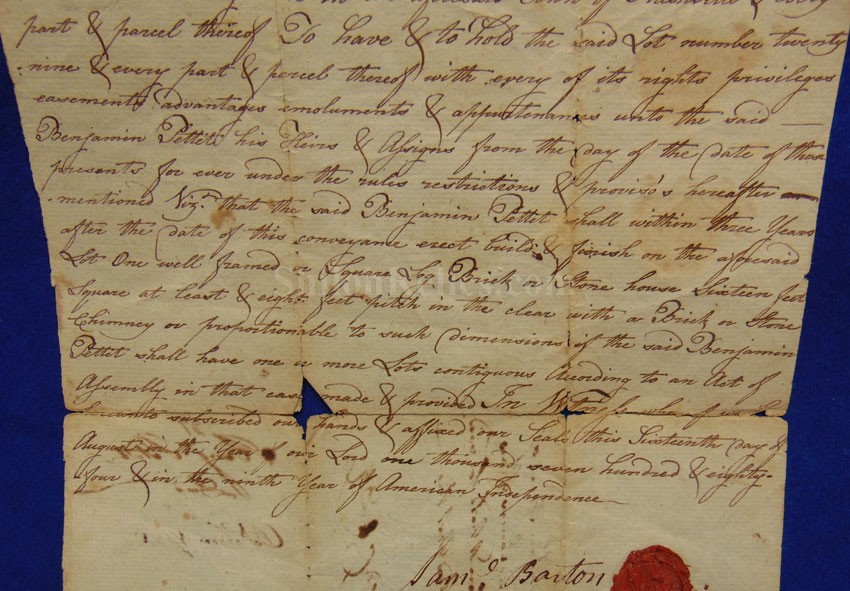 in the aforesaid Town of Nashville & every
part & parcel thereof To have & to hold the said Lot number twenty
nine & every part & percel thereof with every of its rights privileges
easements advantages emoluments & appurtenances unto the said
Benjamin Pettit his Heirs & Assigns from the day of the date of these
presents for ever under the rules restrictions & proviso's hereafter
mentioned Viz.t that the said Benjamin Pettet shall within three Years
after the date of this conveyance erect build & finish on the aforesaid
Lot One well framed or Square Log Brick or Stone house Sixteen feet
Square at least & eight feet pitch in the clear with a Brick or Stone
Chimney or proportionable to such dimensions if the said Benjamin
Pettet shall have one or more Lots contiguous According to an Act of
Assembly in that case made & provided In Witness whereof we have
hereunto subscribed our hands & affixed our Seals this Sixteenth day of
August in the Year of our Lord one thousand seven hundred & eighty-
four & in the ninth Year of American Independence
Sam.l Barton